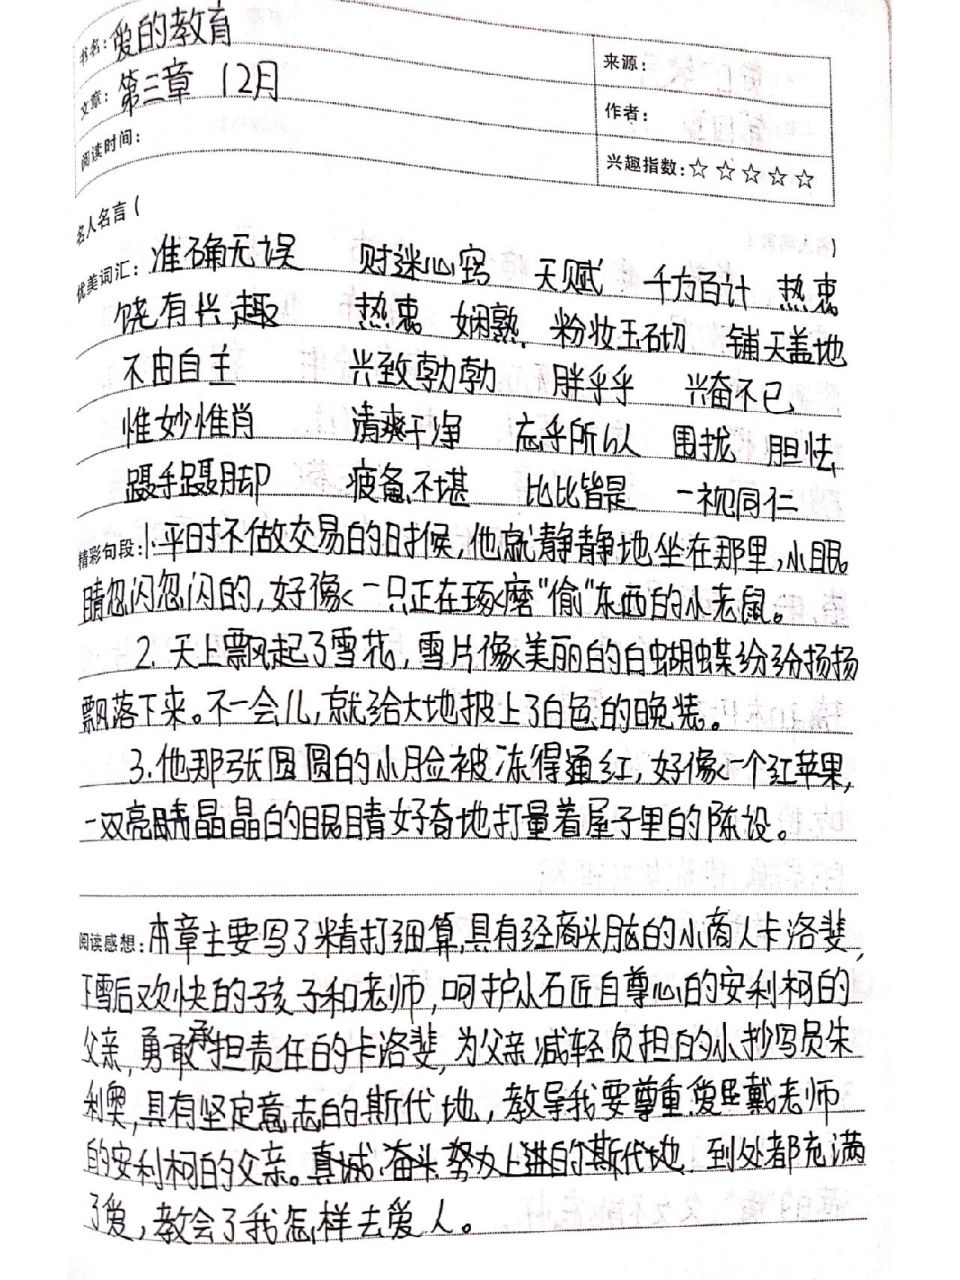 书名: 爱的教育
来源:
文章: 第三章 12月
作者:
阅读时间:
兴趣指数: ☆☆☆☆☆
名人名言( )
优美词汇: 准确无误 财迷心窍 天赋 千方百计 热衷
饶有兴趣 热衷 娴熟 粉妆玉砌 铺天盖地
不由自主 兴致勃勃 胖乎乎 兴奋不已
惟妙惟肖 清爽干净 忘乎所以 围拢 胆怯
蹑手蹑脚 疲惫不堪 比比皆是 一视同仁
精彩句段: 1.平时不做交易的时候,他就静静地坐在那里,小眼
睛忽闪忽闪的,好像一只正在琢磨“偷”东西的小老鼠。
2. 天上飘起了雪花,雪片像美丽的白蝴蝶纷纷扬扬
飘落下来。不一会儿,就给大地披上了白色的晚装。
3.他那张圆圆的小脸被冻得通红,好像一个红苹果,
一双亮晶晶的眼睛好奇地打量着屋子里的陈设。
阅读感想: 本章主要写了精打细算,具有经商头脑的小商人卡洛斐,
下雪后欢快的孩子和老师,呵护从石匠自尊心的安利柯的
父亲,勇敢承担责任的卡洛斐,为父亲减轻负担的小抄写员朱
利奥,具有坚定意志的斯代地,教导我要尊重爱戴老师
的安利柯的父亲。真诚.奋头努力上进的斯代地.到处都充满
了爱,教会了我怎样去爱人。